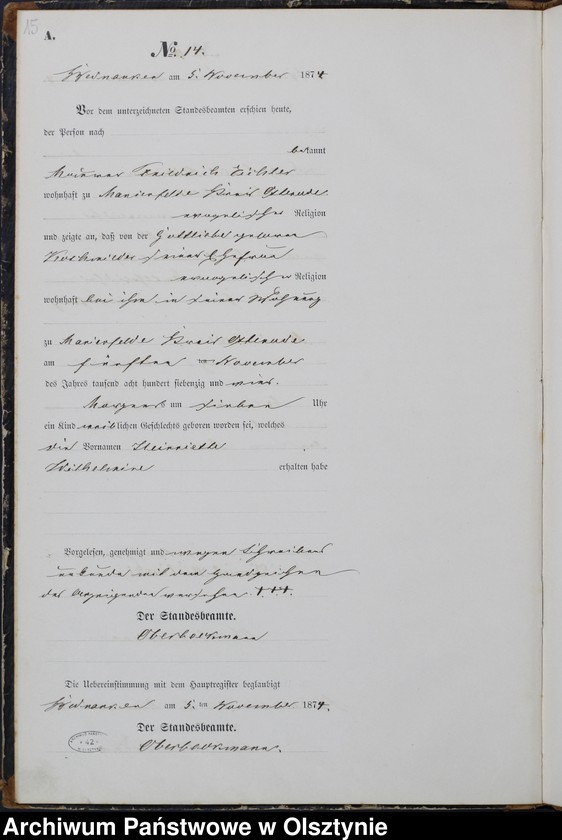 15
A.
No. 14.
am 5. November 1874
Vor dem unterzeichneten Standesbeamten erschien heute,
der Person nach
bekannt
Friedrich
wohnhaft zu Marienfelde Kreis Osterode
evangelischer Religion
und zeigte an, daß von der Gottliebe geborene
seiner Ehefrau
evangelischer Religion
wohnhaft bei ihm in seiner Wohnung
zu Marienfelde Kreis Osterode
am fünften ten November
des Jahres tausend acht hundert siebenzig und vier.
Morgens um sieben Uhr
ein Kind weiblichen Geschlechts geboren worden sei, welches
die Vornamen Henriette
Wilhelmine erhalten habe
Vorgelesen, genehmigt und wegen Schreibens
unkunde mit dem Handzeichen
des Anzeigenden versehen †††.
Der Standesbeamte.
Der Uebereinstimmung mit dem Hauptregister beglaubigt
am 5. ten November 1874.
Der Standesbeamte.
42
Archiwum Państwowe w Olsztynie